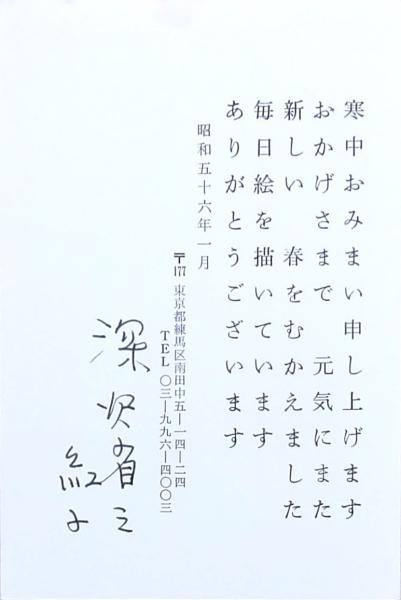 寒中おみまい申し上げます
おかげさまで 元気にまた
新しい 春をむかえました
毎日絵を描いています
ありがとうございます
昭和五十六年一月
〒177 東京都練馬区南田中五ー一四ー二四
TEL 〇三ー九九六ー四〇〇三
深沢省三
紅子